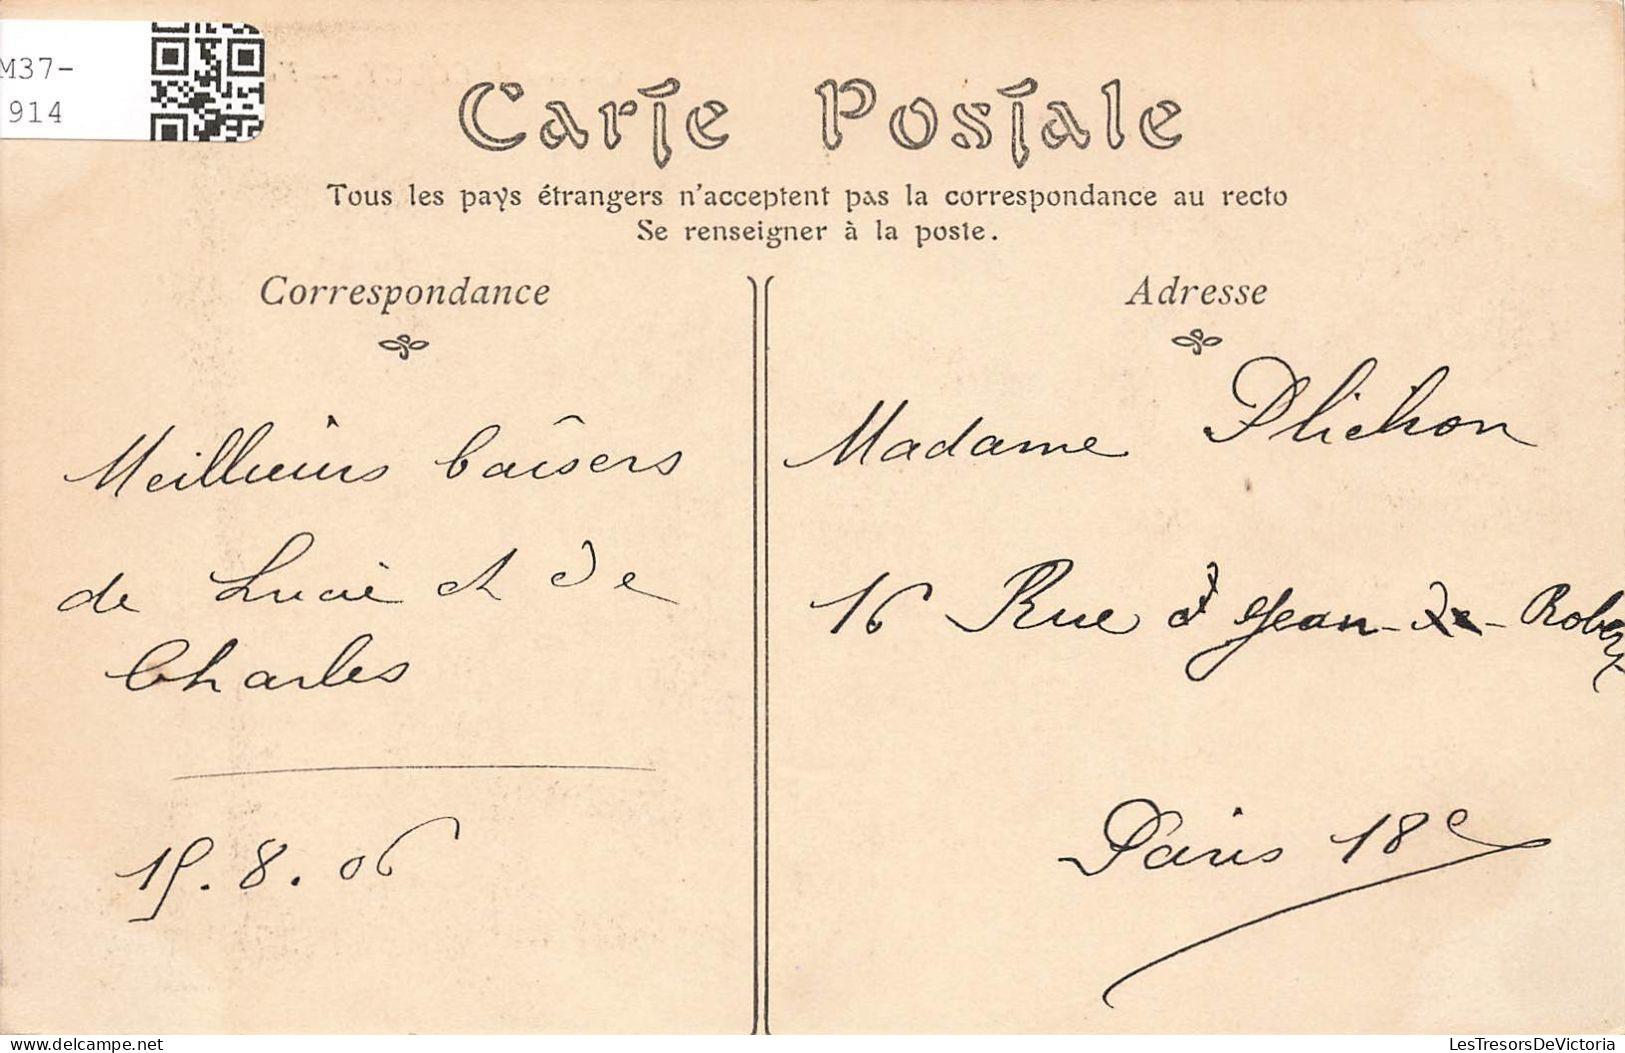 M37-
914
Carte Postale
Tous les pays étrangers n'acceptent pas la correspondance au recto
Se renseigner à la poste.
Correspondance
Adresse
Meilleurs baîsers
de Lucie et de
Charles
15.8.06
Madame Plichon
16 Rue Jean-Robert
Paris 18e
delcampe.net
LesTresorsDeVictoria